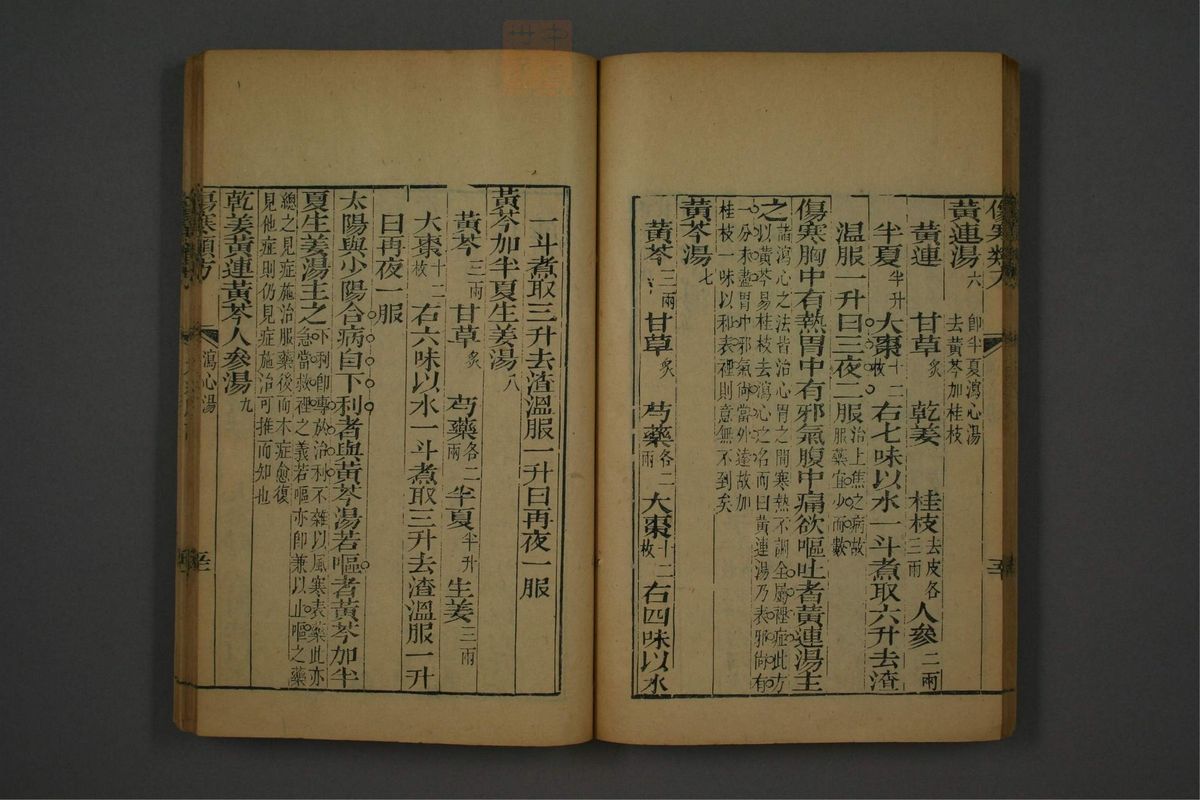 黃連湯六 即半夏瀉心湯去黃芩加桂枝
黃連 甘草炙 乾姜 桂枝去皮各三兩 人參二兩
半夏半升 大棗十二枚 右七味以水一斗煮取六升去渣
溫服一升日三夜二服 治上焦之病故服藥宜少而數
傷寒胸中有熱胃中有邪氣腹中痛欲嘔吐者黃連湯主
之 諸瀉心之法皆治心胃之間寒熱不調全屬裡症此方以黃芩易桂枝去瀉心之名而曰黃連湯乃表邪尚有
一分未盡胃中邪氣尚當外達故加桂枝一味以和表裡則意無不到矣
黃芩湯七
黃芩三兩 甘草炙 芍藥各二兩 大棗十二枚 右四味以水
一斗煮取三升去渣溫服一升日再夜一服
黃芩加半夏生姜湯八
黃芩三兩 甘草炙 芍藥各二兩 半夏半升 生姜三兩
大棗十二枚 右六味以水一斗煮取三升去渣溫服一升
日再夜一服
太陽與少陽合病自下利者與黃芩湯若嘔者黃芩加半
夏生姜湯主之 下利即專於治利不雜以風寒表藥此亦急當救裡之義若嘔亦即兼以止嘔之藥
總之見症施治服藥後而本症愈復見他症則仍見症施治可推而知也
乾姜黃連黃芩人參湯九
傷寒類方
瀉心湯